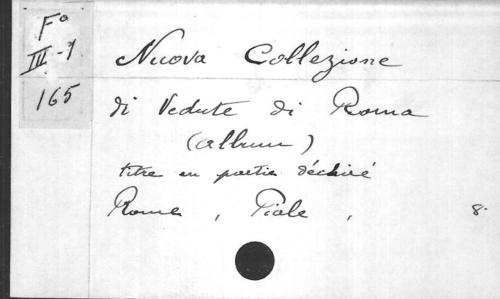 Fo
III-7
165
Nuova Collezione
di Vedute di Roma
(album)
titre en partie déchiré
Rome, Piale,
8.